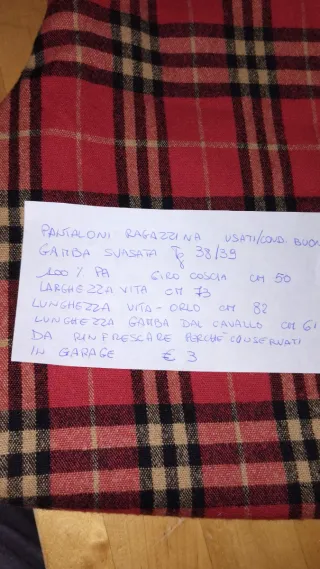 PANTALONI RAGAZZINA USATI/COND BUON
GAMBA SVASATA TG 38/39
100% PA GIRO COSCIA CM 50
LARGHEZZA VITA CM 73
LUNGHEZZA VITA - ORLO CM 82
LUNGHEZZA GAMBA DAL CAVALLO CM 61
DA RINFRESCARE PERCHÈ CONSERVATI
IN GARAGE € 3